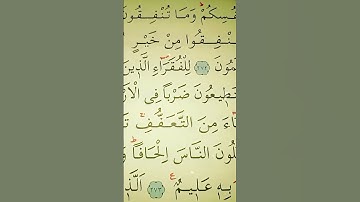 ـفُسِكُمْ وَمَا تُنْفِقُو
ـنْفِقُوا مِنْ خَيْرٍ
ـمُونَ ﴿٢٧٢﴾ لِلْفُقَرَٓاءِ الَّذِينَ
ـطِيعُونَ ضَرْبًا فِي الْاَرْ
ـَٓاءَ مِنَ التَّعَفُّفِۚ تَ
ـلُونَ النَّاسَ اِلْحَافًاۜ وَ
بِهِ عَلِيمٌ ﴿٢٧٣﴾ اَلَّذ